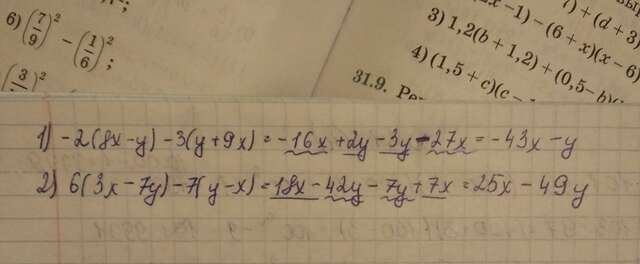 6) (7/9)² − (1/6)²;
x − 1) − (6 + x)(x − 6)
) + (d + 3)
3) 1,2(b + 1,2) + (0,5 − b)(
4) (1,5 + c)(c −
31.9. Ре
1) -2(8x-y)-3(y+9x)=-16x+2y-3y-27x=-43x-y
2) 6(3x-7y)-7(y-x)=18x-42y-7y+7x=25x-49y